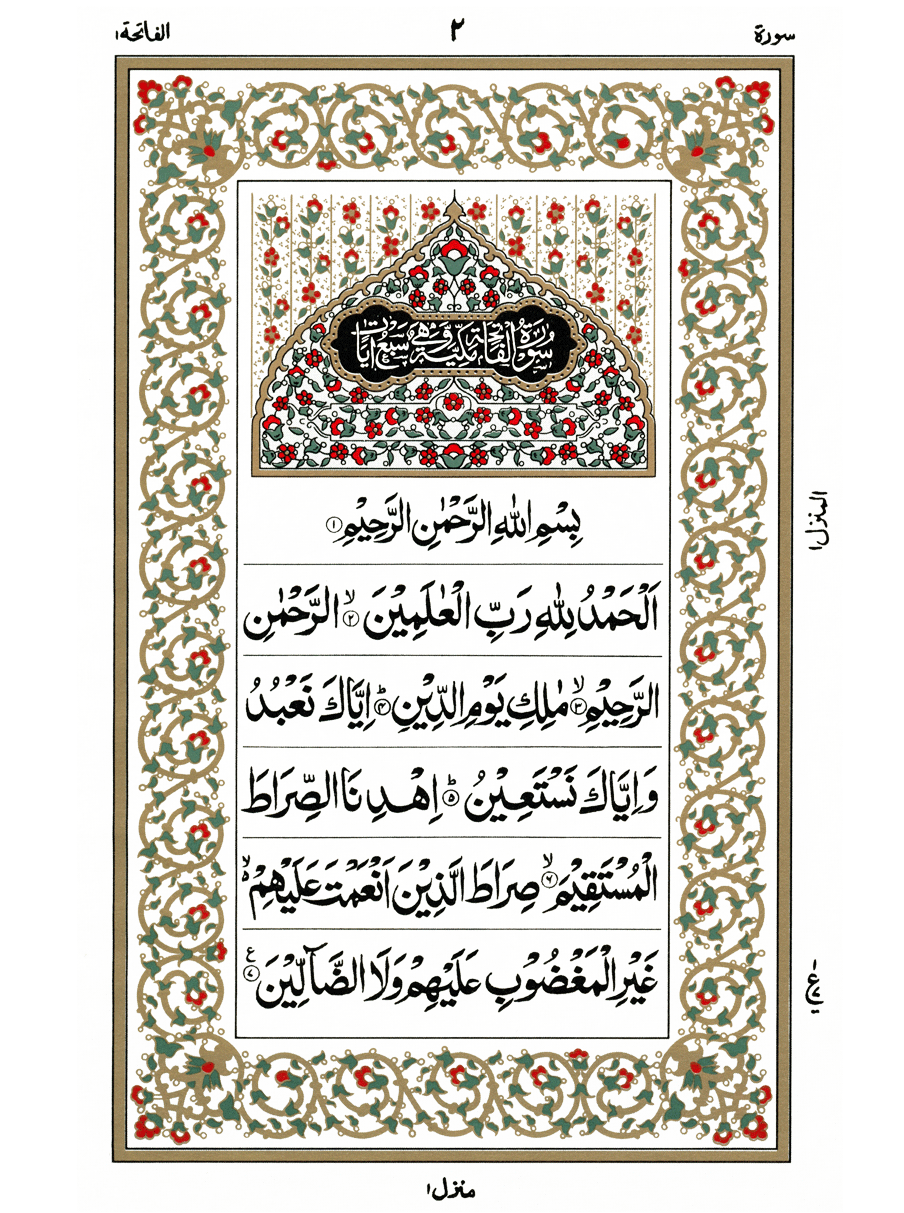 سورة
٢
الفاتحة ١
سُوْرَةُ الْفَاتِحَةِ مَكِّيَّةٌ وَّهِيَ سَبْعُ اٰيَاتٍ
بِسْمِ اللّٰهِ الرَّحْمٰنِ الرَّحِيْمِ ①
اَلْحَمْدُ لِلّٰهِ رَبِّ الْعٰلَمِيْنَ ۙ② الرَّحْمٰنِ
الرَّحِيْمِ ۙ③ مٰلِكِ يَوْمِ الدِّيْنِ ؕ④ اِيَّاكَ نَعْبُدُ
وَاِيَّاكَ نَسْتَعِيْنُ ؕ⑤ اِهْدِنَا الصِّرَاطَ
الْمُسْتَقِيْمَ ۙ⑥ صِرَاطَ الَّذِيْنَ اَنْعَمْتَ عَلَيْهِمْ ۙ
غَيْرِ الْمَغْضُوْبِ عَلَيْهِمْ وَلَا الضَّآلِّيْنَ ⑦ ع
المنزل ١
منزل ١